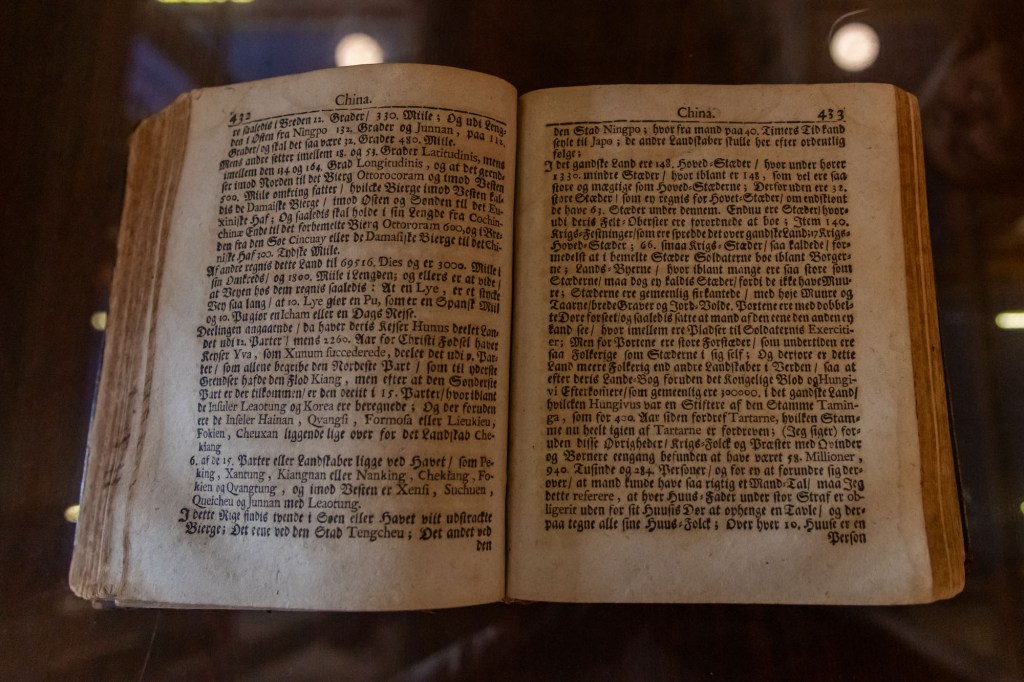 432
China.
re saaledis i Breden 22. Grader/ 330. Miile; Og udi Leng-
den i Østen fra Ningpo 132. Grader og Junnan, paa 112.
Grader/ og skal det saa være 32. Grader 480. Miile.
Mens andre setter imellem 18. og 53. Grader Latitudinis, mens
imellem 134 og 164. Grad Longitudinis, og at det grend-
ser imod Norden til det Bierg Ottorocoram og imod Vesten
500. Miile omkring fatter/ hvilcke Bierge imod Vesten kal-
dis de Damasiske Bierge/ imod Østen og Sønden til det Eu-
xiniske Haf; Og saaledis skal holde i sin Lengde fra Cochin-
chinæ Ende til det forbemelte Bierg Ottororam 600, og i Bre-
den fra den Søe Cincuay eller de Damasiske Bierge til det Chi-
niske Haf 300. Tydske Miile.
Af andre regnis dette Land til 69516. Dies og er 3000. Miile i
sin Omkreds/ og 1800. Miile i Lengden; og ellers er at vide/
at Veyen hos dem regnis saaledis: At en Lye, er et stycke
Vey saa lang/ at 10. Lye giør en Pu, som er en Spansk Miil
og 10. Pu giør en Icham eller en Dags Rejse.
Deelingen angaaende/ da haver deris Kejser Hunus deelet Lan-
det udi 12. Parter/ mens 2260. Aar for Christi Fødsel haver
Keyser Yva, som Xunum succederede, deelet det udi 9. Par-
ter/ som allene begribe den Nordeste Part/ som til yderste
Grendser hafde den Flod Kiang, men efter at den Sønderste
Part er der tilkommen/ er den deelit i 15. Parter/ hvor iblant
de Insuler Leaotung og Korea ere beregnede; Og der foruden
ere de Inseler Hainan, Qvangsi, Formosa eller Lieukieu,
Fokien, Cheuxan liggende lige over for det Landskab Che-
kiang
6. af de 15. Parter eller Landskaber ligge ved Havet/ som Pe-
king, Xantung, Kiangnan eller Nanking, Chekiang, Fo-
kien og Qvangtung, og imod Vesten er Xensi, Suchuen,
Queicheu og Junnan med Leaotung.
I dette Rige findis tvende i Søen eller Havet viit udstrackte
Bierge; Det eene ved den Stad Tengcheu; Det andet ved
den
China.
433
den Stad Ningpo; hvor fra mand paa 40. Timers Tid kand
seyle til Japo; de andre Landskaber skulle her efter ordentlig
følge;
I det gandske Land ere 148. Hoved-Stæder/ hvor under hører
1330. mindre Stæder/ hvor iblant er 148, som vel ere saa
store og mægtige som Hoved-Stæderne; Der foruden ere 32.
store Stæder/ som ey regnis for Hovet-Stæder/ om endskiønt
de have 63. Stæder under dennem. Endnu ere Stæder/ hvor-
udi deris Felt-Oberster ere forordnede at boe; Item 140.
Krigs-Festninger/ som ere spredde det over gandske Land; 17. Krigs-
Hoved-Stæder; 66. smaa Krigs-Stæder/ saa kaldede/ for-
medelst at i bemelte Stæder Soldaterne boe iblant Borger-
ne; Lands-Byerne/ hvor iblant mange ere saa store som
Stæderne/ maa dog ey kaldis Stæder/ fordi de ikke have Muu-
re; Stæderne ere gemeenlig firkantede/ med høje Muure og
Taarne/ brede Graver og Jord-Volde. Portene ere med dobbel-
te Døre forset/ og saaledis satte at mand af den eene den anden ey
kand see/ hvor imellem ere Pladser til Soldaternis Exerciti-
er; Men for Portene ere store Forstæder/ som undertiden ere
saa Folkerige som Stæderne i sig self; Og derfore er dette
Land meere Folkerig end andre Landskaber i Verden/ saa at
efter deris Lands-Bog foruden det Kongelige Blod og Hungi-
vi Efterkomere/ som gemeenlig ere 300000. i det gandske Land/
hvilcken Hungivus var en Stiftere af den Stamme Tamin-
ga, som for 400. Aar siden fordref Tartarne, hvilken Stam-
me nu heelt igien af Tartarne er fordreven; (Jeg siger) for-
uden disse Øvrigheder/ Krigs-Folck og Præster med Qvinder
og Børnere eengang befunden at have været 58. Millioner,
940. Tusinde og 284. Personer/ og for ey at forundre sig der-
over/ at mand kunde have saa rigtig et Mand-Tal/ maa Jeg
dette referere, at hver Huus-Fader under stor Straf er ob-
ligerit uden for sit Huusis Dør at ophenge en Tavle/ og der-
paa tegne alle sine Huus-Folck; Over hver 10. Huuse er en
Person